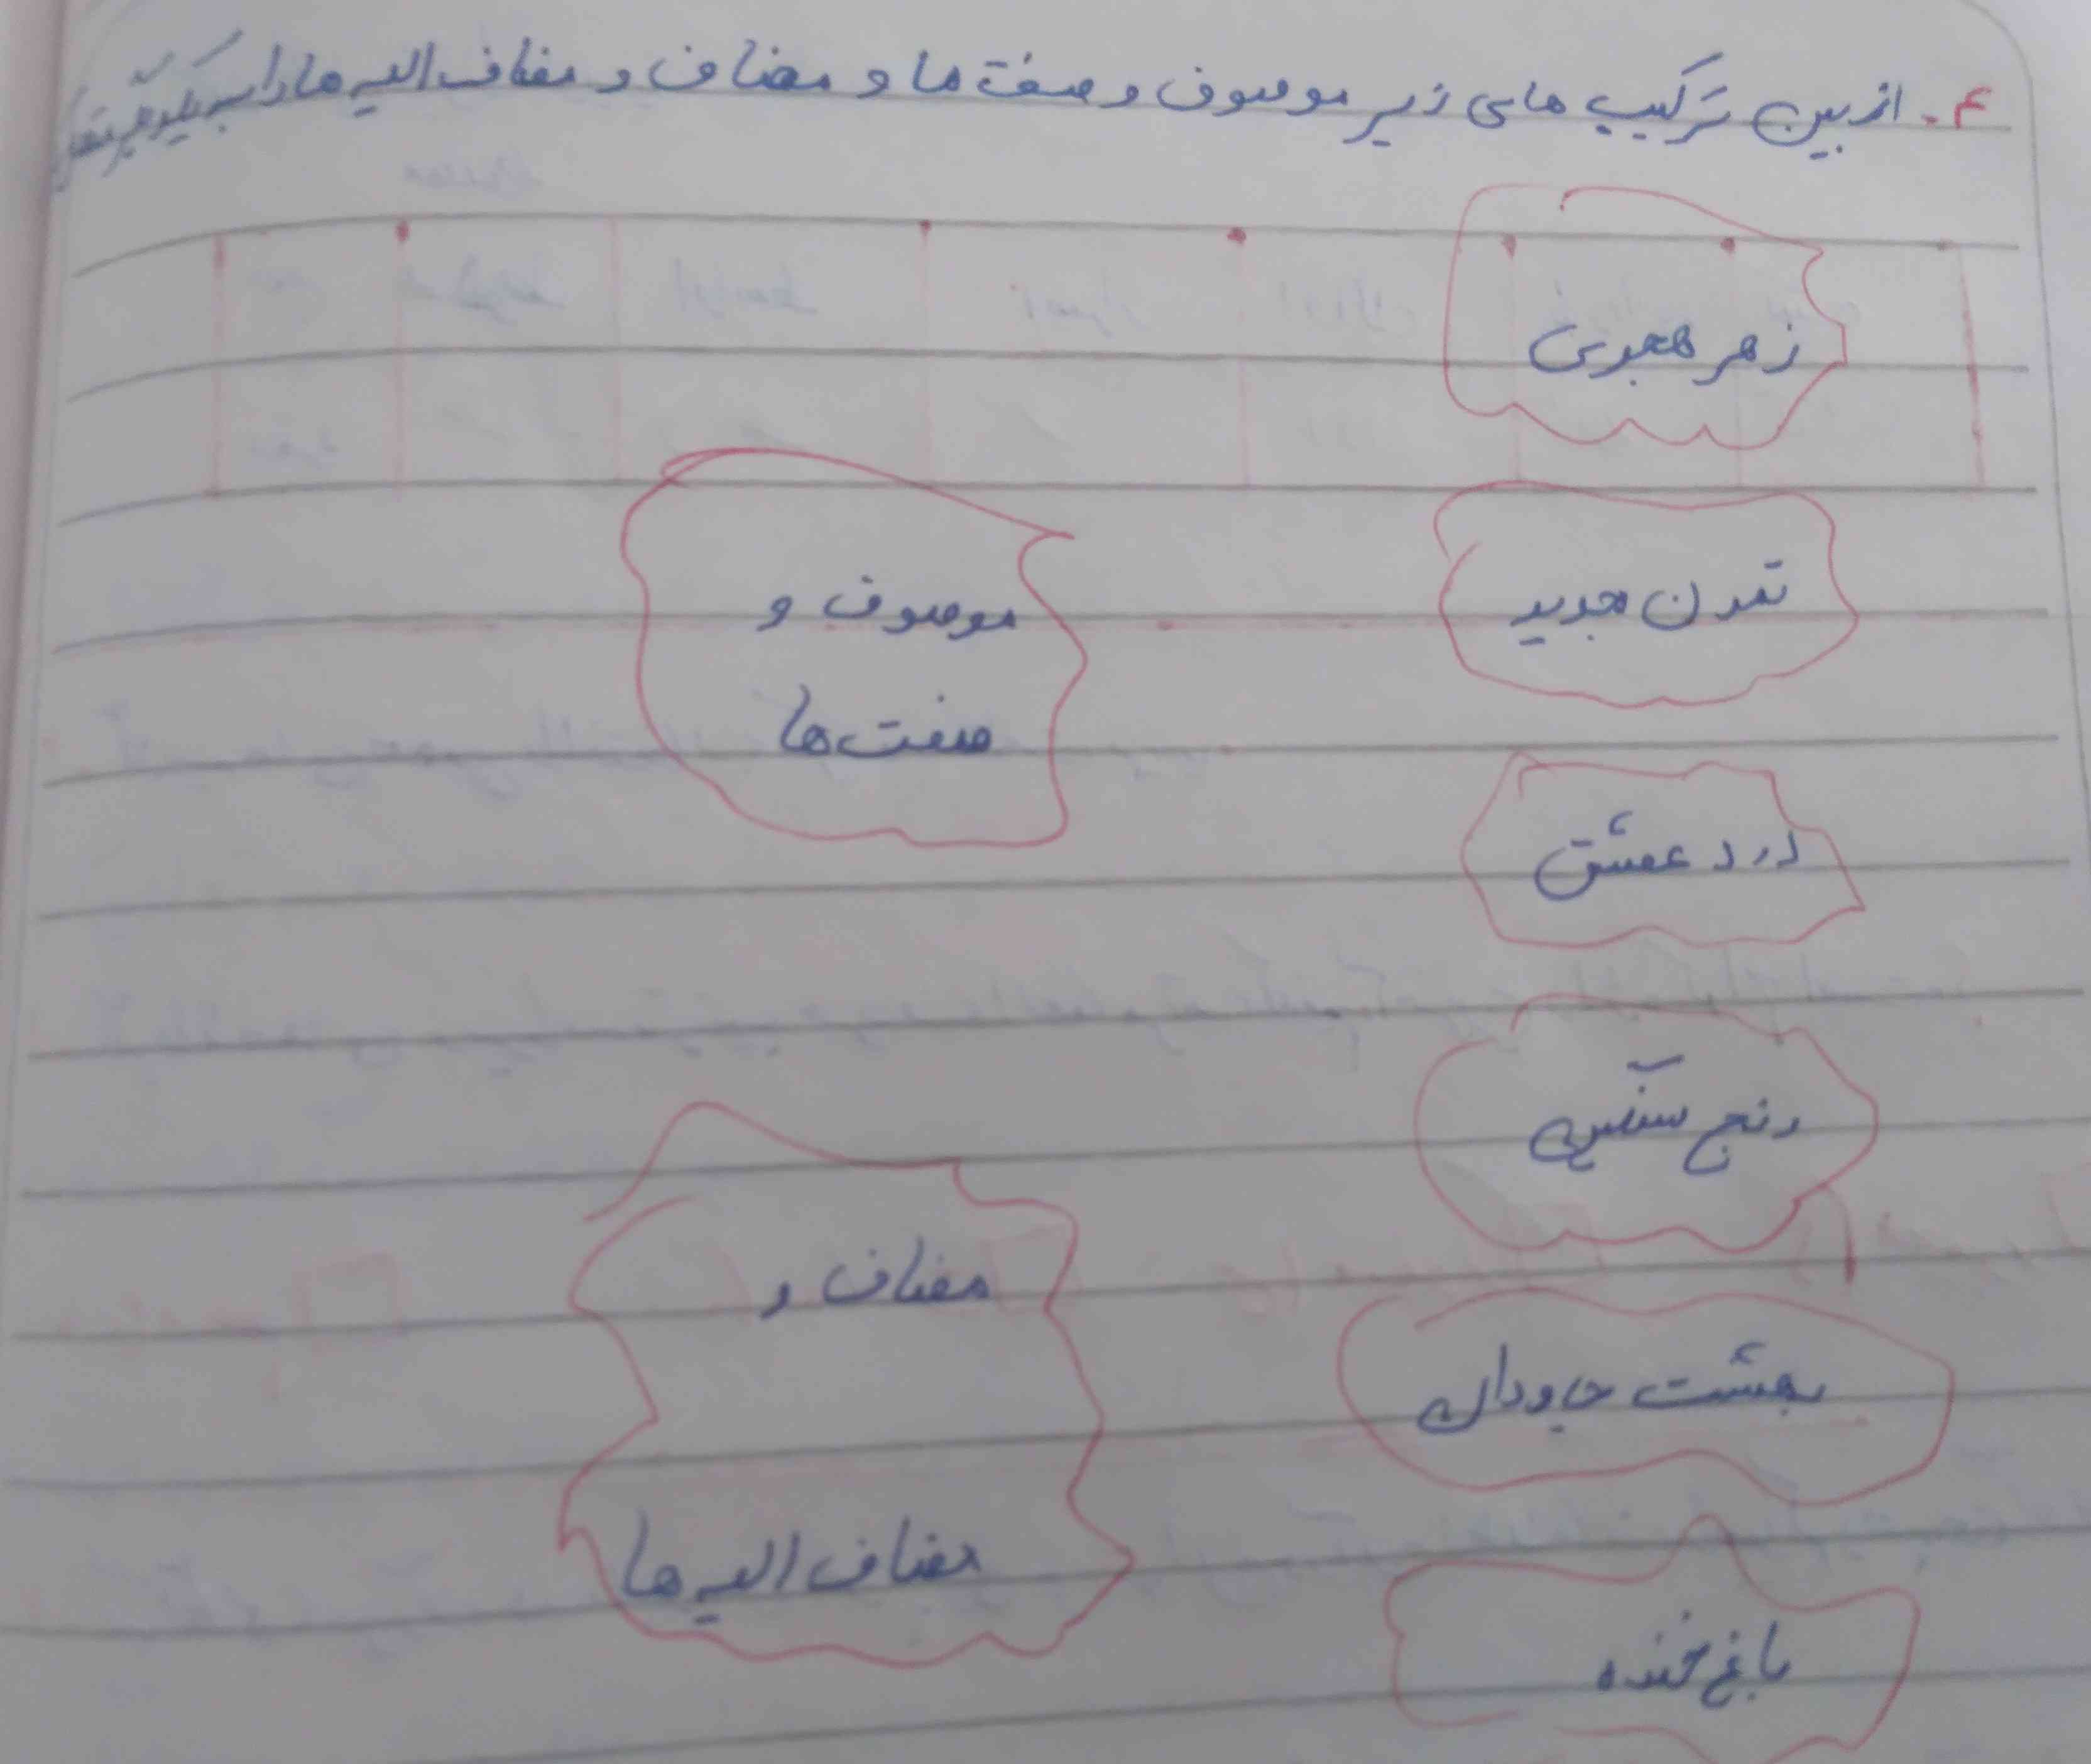 ۴. از بین ترکیب های زیر موصوف و صفت ها و مضاف و مضاف الیه ها را به یکدیگر
زهر هجری
تمدن جدید
موصوف و
صفت ها
درد عشق
رنج سنگین
مضاف و
بهشت جاودان
مضاف الیه ها
باغ خنده